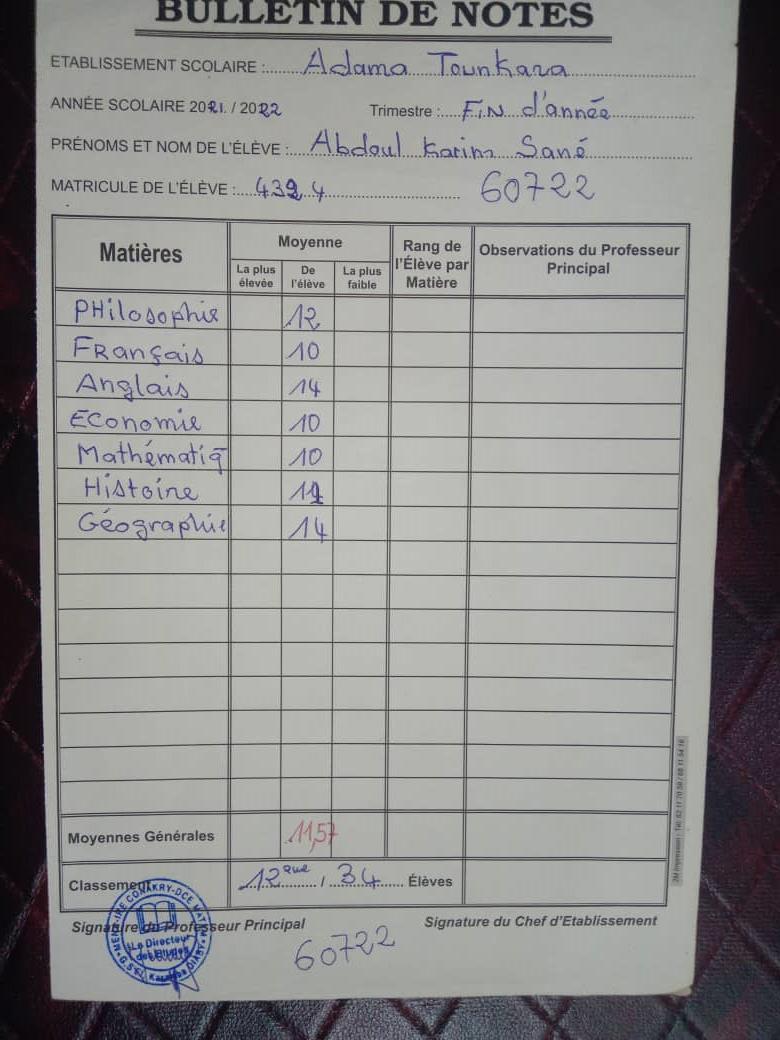 BULLETIN DE NOTES
ETABLISSEMENT SCOLAIRE : Adama Tounkara
ANNÉE SCOLAIRE 2021 / 2022 Trimestre : FiN d'année
PRÉNOMS ET NOM DE L'ÉLÈVE : Abdoul Karim Sané
MATRICULE DE L'ÉLÈVE : 4324 60722
Matières Moyenne Rang de l'Élève par Matière Observations du Professeur Principal
La plus élevée De l'élève La plus faible
PHilosophie 12
FRançais 10
Anglais 14
Economie 10
Mathématiq 10
Histoire 11
Géographie 14
Moyennes Générales 11,57
Classement 12ème / 34 Élèves
Signature du Professeur Principal Signature du Chef d'Etablissement
Le Directeur
des Etudes
60722